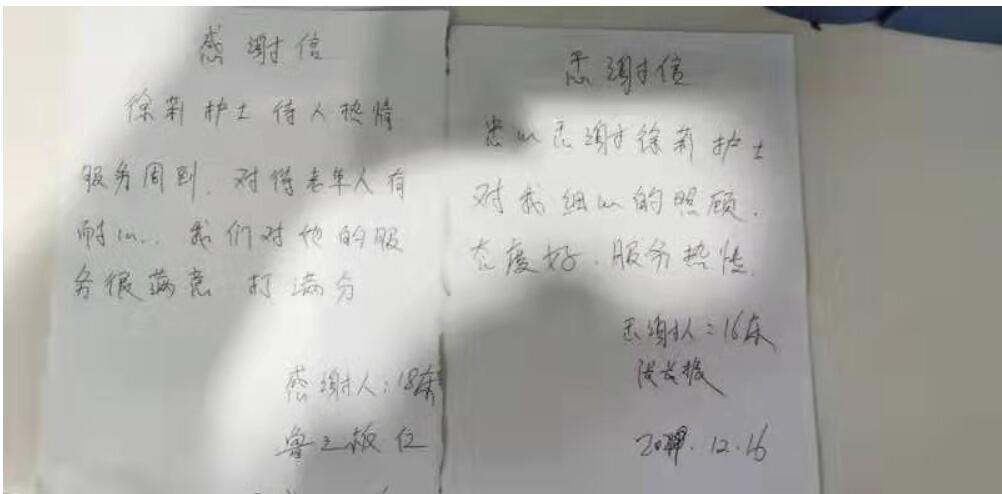 感谢信
徐莉护士待人热情
服务周到. 对待老年人有
耐心.. 我们对他的服
务很满意 打满分
感谢人:18床
感谢信
忠心感谢徐莉护士
对我细心的照顾.
态度好.服务热情.
感谢人:16床
12.16